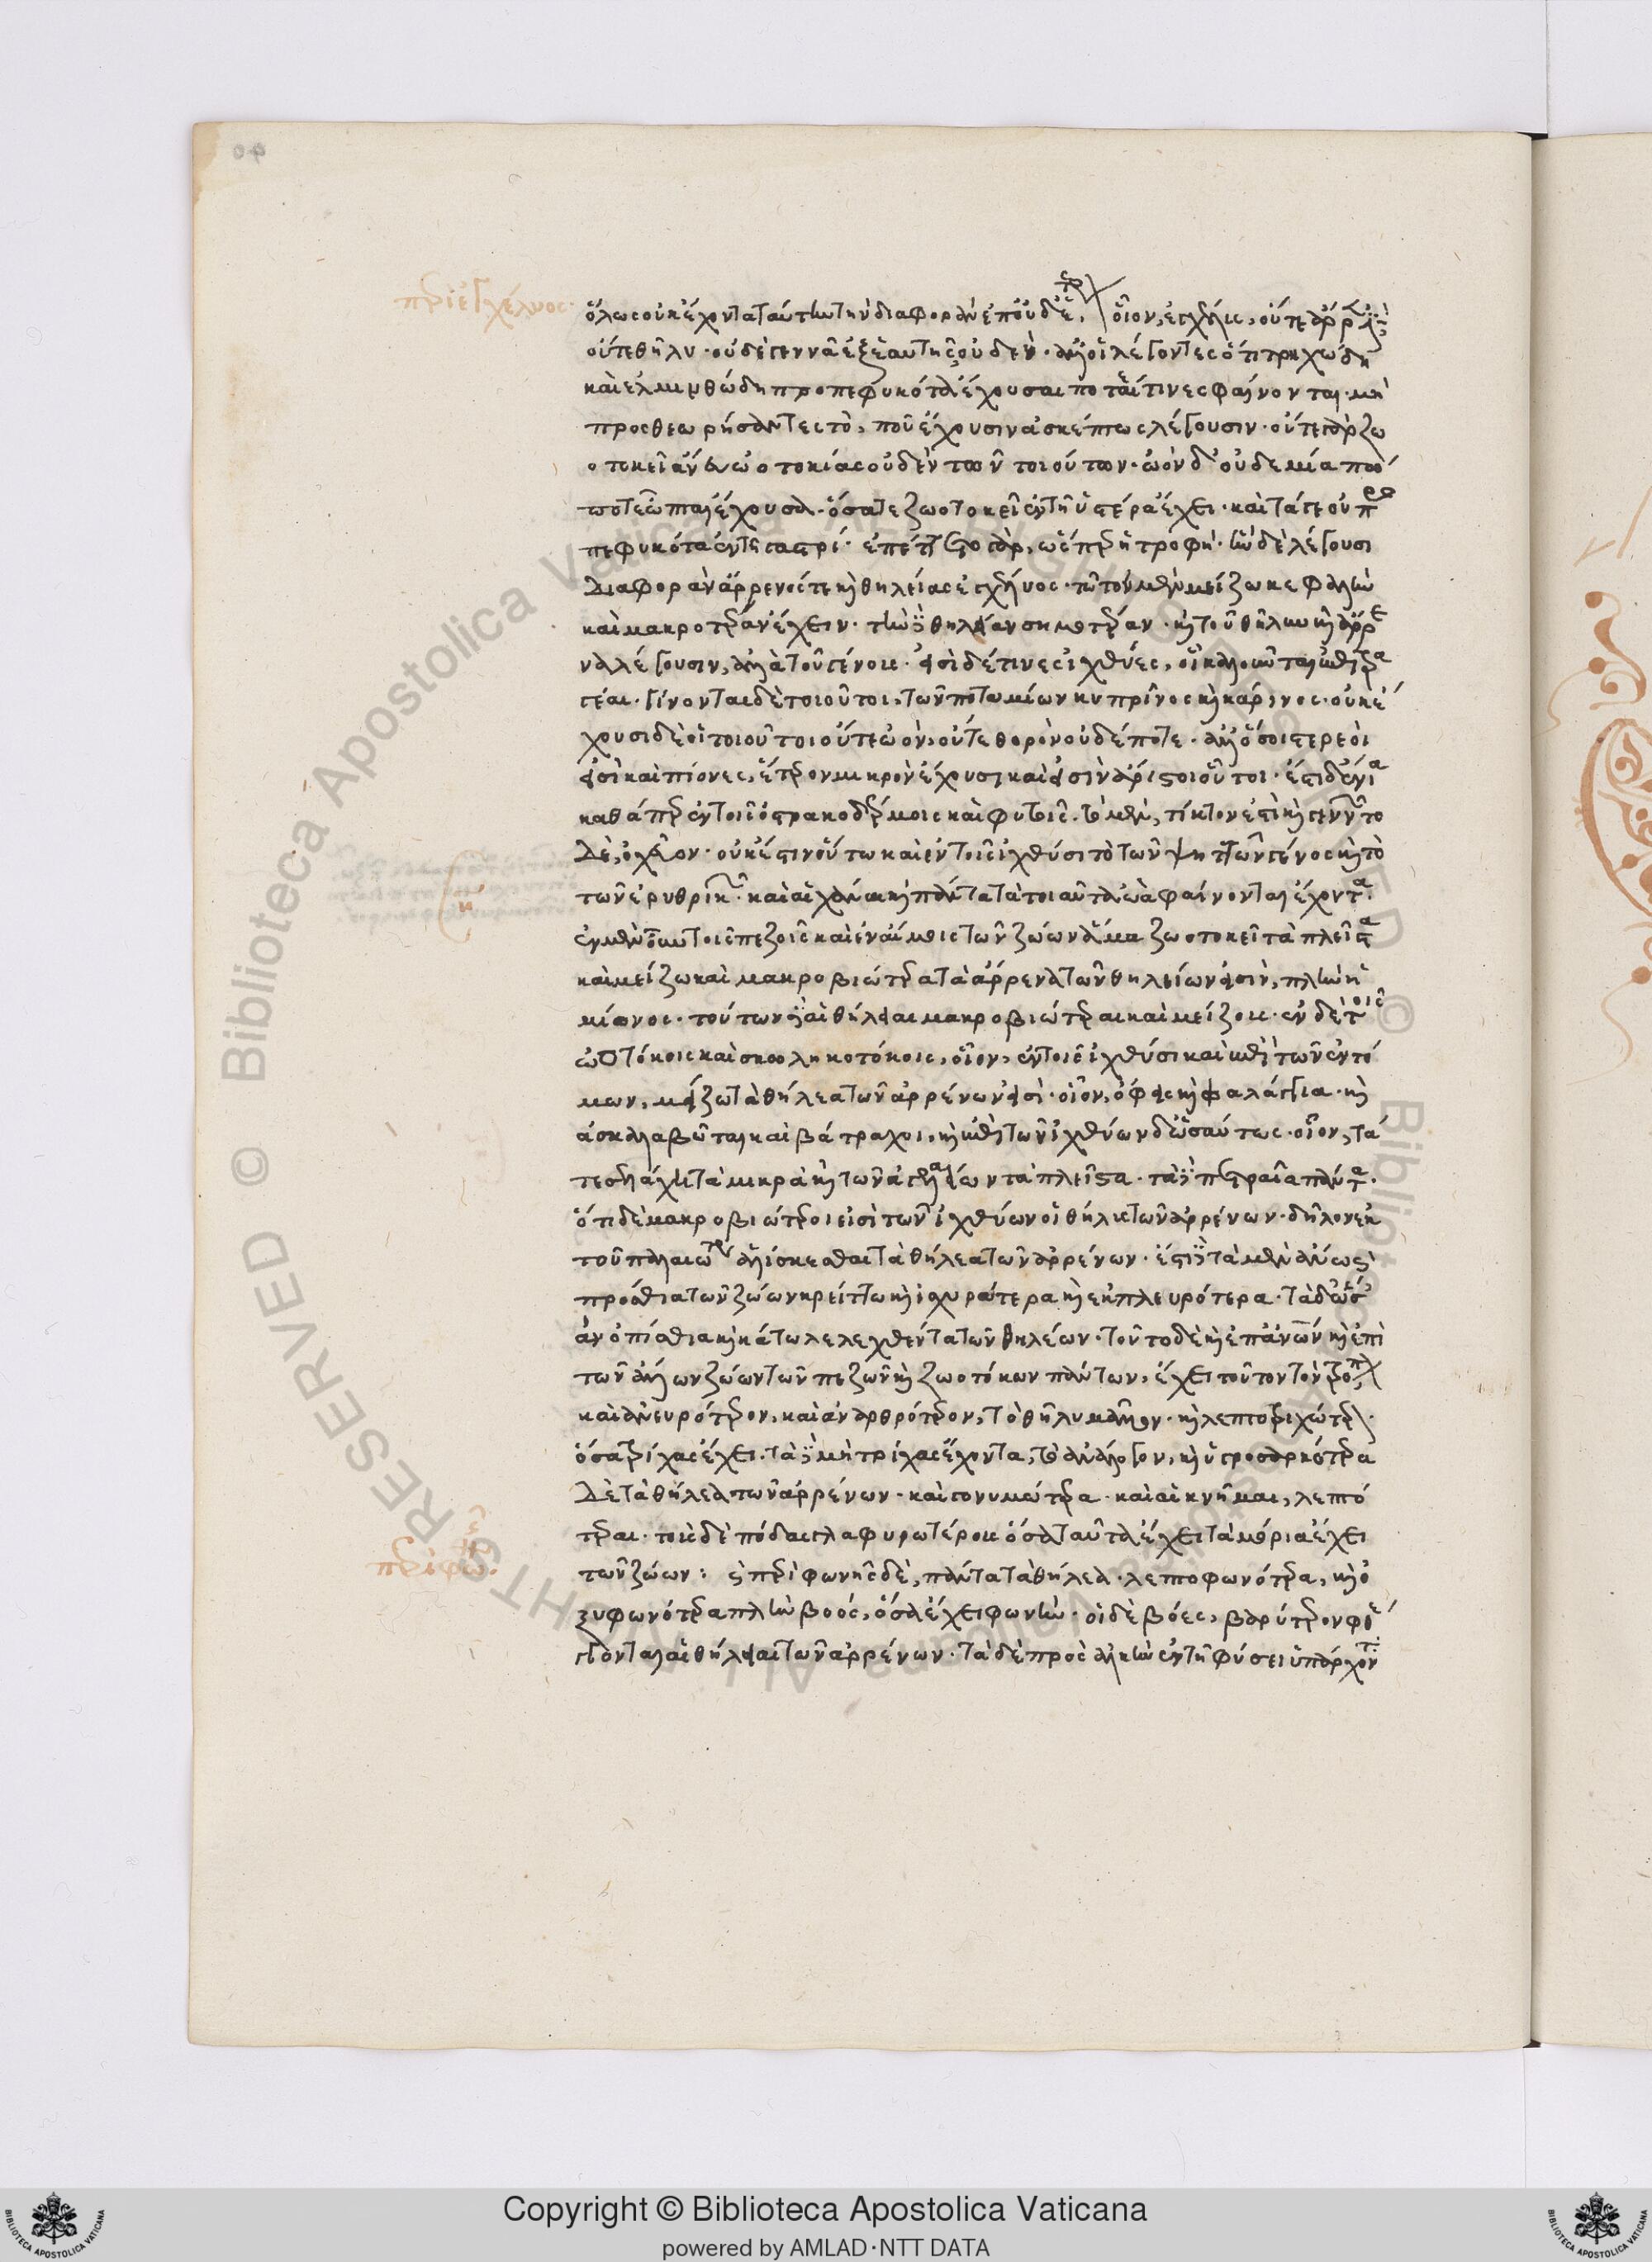 περὶ ἐγχέλυος
ὅλως οὐκ ἔχοντα ταύτην τὴν διαφορὰν ἐπ' οὐδετέρων οἷον, ἔγχελυς, οὔτε ἄρρεν ἐστὶν
οὔτε θῆλυ· οὐδὲ γεννᾶ ἐξ ἑαυτῆς οὐδέν· ἀλλ' οἱ λέγοντες ὅτι τριχώδη
καὶ ἑλμινθώδη προπεφυκότα ἔχουσαι ποτέ τινες φαίνονται· μὴ
προσθεωρήσαντες τὸ, ποῦ ἔχουσιν ἀσκέπτως λέγουσιν· οὔτε γὰρ ζω
οτοκεῖ ἄνευ ὠοτοκίας οὐδὲν τῶν τοιούτων· ὠὸν δ' οὐδεμία πώ
ποτε ὦπται ἔχουσα· ὅσα τε ζωοτοκεῖ ἐν τῇ ὑστέρα ἔχει· καὶ
πεφυκότα ἐν τῇ γαστρί· ἐπέττετο γὰρ, ὥσπερ ἡ τροφή· ἣν δὲ λέγουσι
διαφορὰν ἄρρενός τε καὶ θηλείας ἐγχέλυος· τῷ τὸν μὲν μείζω κεφαλὴν
καὶ μακροτέραν ἔχειν· τὴν δὲ θήλειαν σιμοτέραν· οὐ τοῦ θήλεως καὶ ἄρρε
νος λέγουσιν, ἀλλὰ τοῦ γένους· εἰσὶ δέ τινες ἰχθύες, οἳ καλοῦνται ἐπιτρα
γίαι· γίνονται δὲ τοιοῦτοι, τῶν ποταμίων κυπρῖνος καὶ κάρινος· οὐκ ἔ
χουσι δὲ οἱ τοιοῦτοι οὔτε ὠὸν, οὔτε θορὸν οὐδέποτε· ἀλλ' ὅσοι στερεοὶ
εἰσὶ καὶ πίονες, ἔντερον μικρὸν ἔχουσι καὶ εἰσὶν ἄριστοι οὗτοι· ἔστι δ' ἔνια
καθάπερ ἐν τοῖς ὀστρακοδέρμοις καὶ φυτοῖς. τὸ μὲν, τίκτον ἐστὶ καὶ γεννῶν τὸ
δὲ, ὀχεῦον· οὐκ ἔστιν οὕτω καὶ ἐν τοῖς ἰχθύσι τὸ τῶν ψηττῶν γένος καὶ τὸ
τῶν ἐρυθρίνων· καὶ αἱ χάνναι καὶ πάντα τὰ τοιαῦτα ὠὰ φαίνονται ἔχοντα.
ἐν μὲν οὖν τοῖς πεζοῖς καὶ ἐναίμοις τῶν ζώων ἅμα ζωοτοκεῖ τὰ πλεῖστα
καὶ μείζω καὶ μακροβιώτερα τὰ ἄρρενα τῶν θηλείων εἰσὶν, πλὴν ἡ
μίονος· τούτων δὲ αἱ θήλειαι μακροβιώτεραι καὶ μείζους· ἐν δὲ τοῖς
ὠοτόκοις καὶ σκωληκοτόκοις, οἷον, ἐν τοῖς ἰχθύσι καὶ ἐπὶ τῶν ἐντό
μων, μείζω τὰ θήλεα τῶν ἀρρένων εἰσί· οἷον, ὄφεις καὶ φαλάγγια· καὶ
ἀσκαλαβῶται καὶ βάτραχοι, καὶ ἐπὶ τῶν ἰχθύων δ' ὡσαύτως· οἷον, τά
τε σελάχη τὰ μικρὰ καὶ τῶν ἀγελαίων τὰ πλεῖστα· τὰ δὲ πετραῖα πάντα.
ὅτι δὲ μακροβιώτεροι εἰσὶ τῶν ἰχθύων οἱ θήλεις τῶν ἀρρένων· δῆλον ἐκ
τοῦ παλαιότερα ἁλίσκεσθαι τὰ θήλεα τῶν ἀρρένων· ἔστι δὲ τὰ μὲν ἄνω καὶ
πρόσθια τῶν ζώων κρείττω καὶ ἰσχυρότερα καὶ εὐπλευρότερα· τὰ δ' ὡς
ἂν ὀπίσθια καὶ κάτω λελεχθέντα τῶν θηλείων· τοῦτο δὲ καὶ ἐπ' ἀνθρώπων καὶ ἐπὶ
τῶν ἄλλων ζώων τῶν πεζῶν καὶ ζωοτόκων πάντων, ἔχει τοῦτον τὸν τρόπον
καὶ ἀνευρότερον, καὶ ἀναρθρότερον, τὸ θῆλυ μᾶλλον· καὶ λεπτοτριχώτερον·
ὅσα τρίχας ἔχει. τὰ δὲ μὴ τρίχας ἔχοντα, τὸ ἀνάλογον, καὶ ὑγροσαρκότερα
δὲ τὰ θήλεα τῶν ἀρρένων· καὶ γονυμώτερα· καὶ αἱ κνῆμαι, λεπτό
τεραι· τοὺς δὲ πόδας γλαφυρωτέρους ὅσα ταῦτα ἔχει τὰ μόρια ἔχει
περὶ φωνῆς
τῶν ζώων: περὶ φωνῆς δὲ, πάντα τὰ θήλεα· λεπτοφωνότερα, καὶ ὀ
ξυφωνότερα πλὴν βοός, ὅσα ἔχει φωνήν· οἱ δὲ βόες, βαρύτερον φθέ
γγονται αἱ θήλειαι τῶν ἀρρένων· τὰ δὲ πρὸς ἀλκὴν ἐν τῇ φύσει ὑπάρχοντα
Copyright © Biblioteca Apostolica Vaticana
powered by AMLAD·NTT DATA